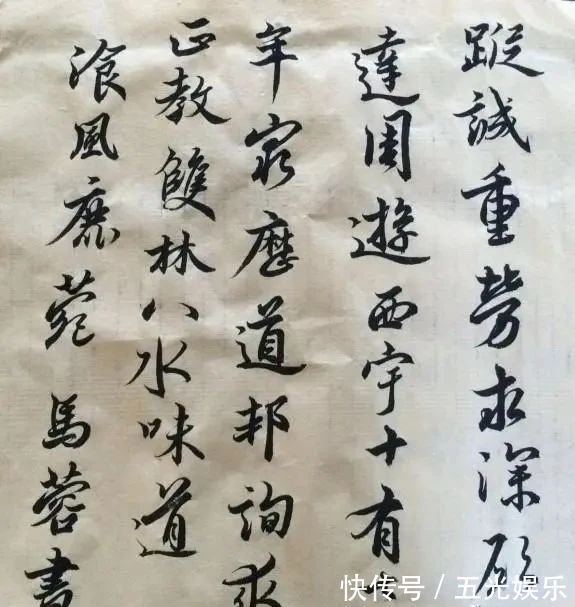 蹤誠重勞求深願
達周遊西宇十有
年窮歷道邦詢求
正教雙林八水味道
湌風鹿苑 馬蓉書
快传号 / 五光娱乐